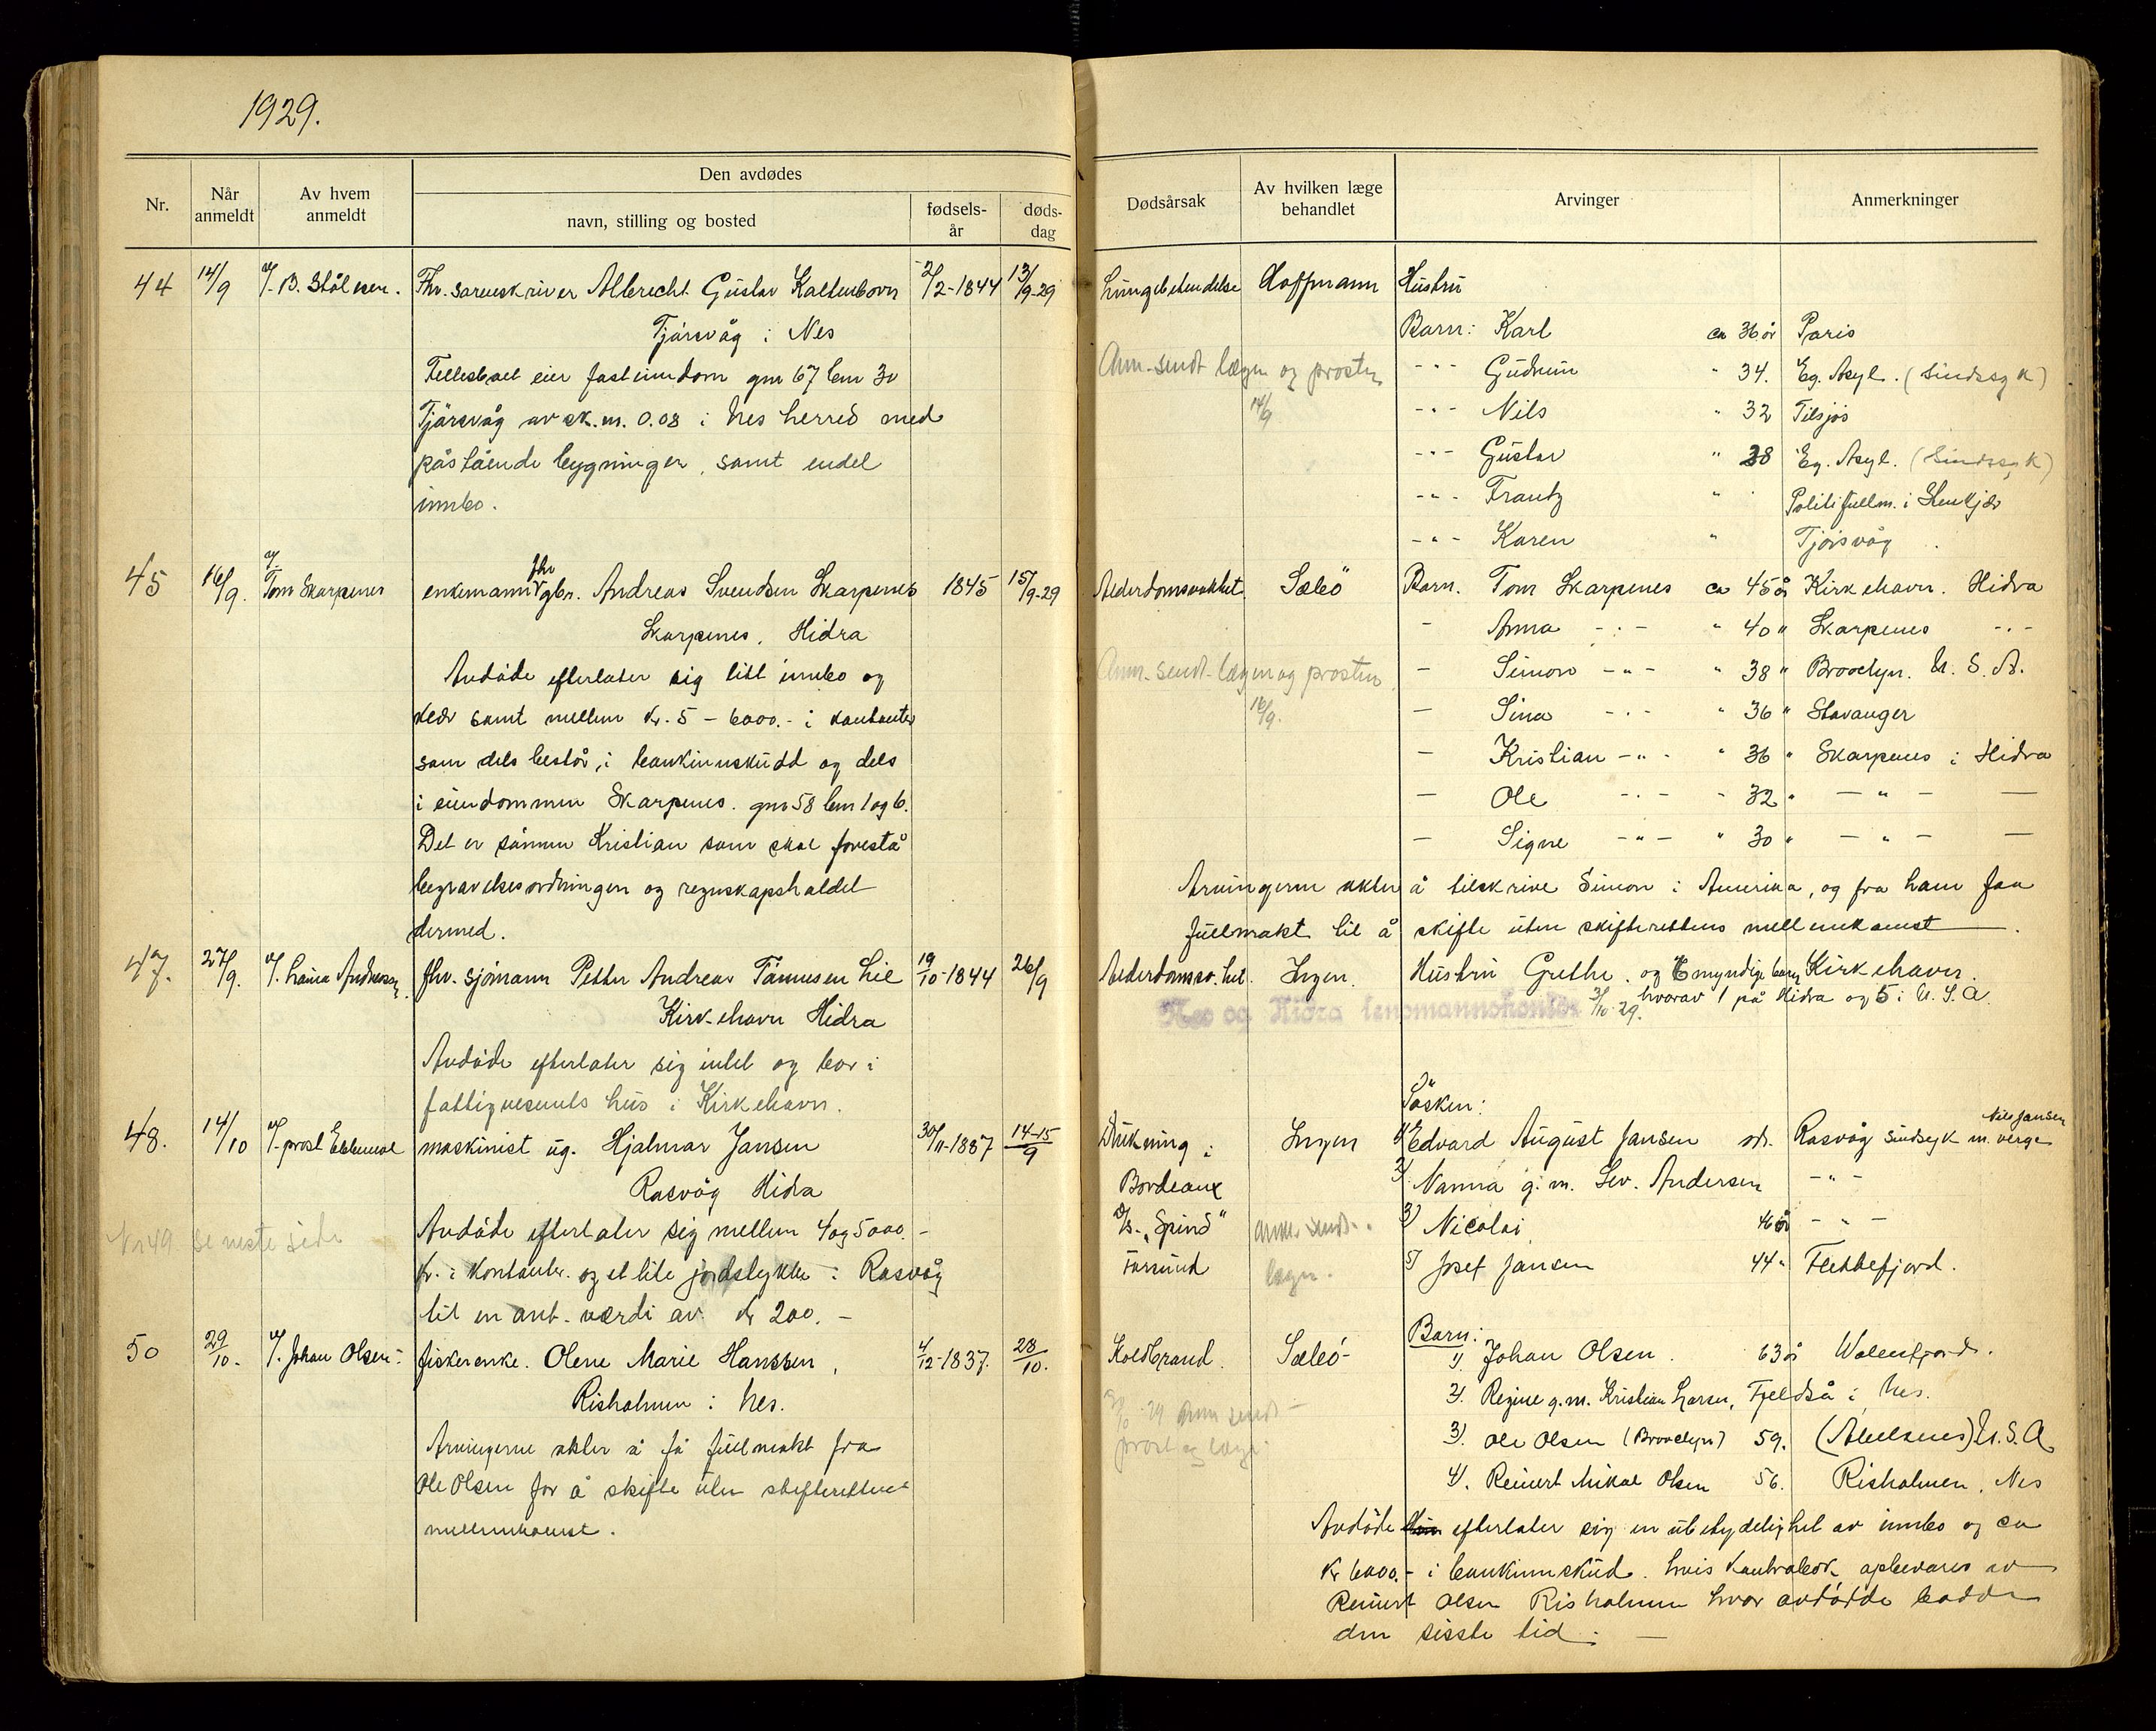 1929.
Nr.
Når anmeldt
Av hvem anmeldt
Den avdødes
navn, stilling og bosted
fødsels-år
døds-dag
Dødsårsak
Av hvilken læge behandlet
Arvinger
Anmerkninger
44 14/9 v/. B. Stålesen. Fhv. sorenskriver Albrecht Gustav Kaltenborn 2/2-1844 13/9-29 Lungebetendelse Hoffmann Hustru
Tjørsvåg i Nes Barn: Karl ca 36 år Paris
Fellesboet eier fast eiendom gnr 67 bnr 30 Anm. sendt lægen og prosten - " - Gudrun " 34. Eg. Asyl. (Sindssyk)
Tjørsvåg av sk. m. 0.08 i Nes herred med 14/9 - " - Nils " 32
påstående bygninger, samt endel - " - Gustav " 28 Eg. Asyl. (Sindssyk)
innbo. - " - Frantz " Politifullm. i Stenkjær
- " - Karen " Tjørsvåg
45 16/9. v/. Tom Skarpenes enkemann fhv gbr. Andreas Svendsen Skarpenes 1845 15/9-29 Alderdomssvakhet Sæleö Barn. Tom Skarpenes ca 45 år Kirkehavn. Hidra
Skarpenes. Hidra - Anna - " - " 40 " Skarpenes - " -
Avdöde efterlater sig litt innbo og Anm. sendt lægen og prosten - Simon - " - " 38 " Brooclyn. U. S. A.
klær samt mellem kr. 5 - 6000.- i kontanter 16/9. - Sina - " - " 36 " Stavanger
som dels består i bankinnskudd og dels - Kristian - " - " 36 " Skarpenes i Hidra
i eiendommen Skarpenes. gnr 58 bnr 1 og 6. - Ole - " - " 32 " - " - -
Det er sönnen Kristian som skal forestå - Signe - " - " 30 " - " - -
begravelsesordningen og regnskapsholdet Arvingerne akter å tilskrive Simon i Amerika, og fra ham faa
dermed. fullmakt til å skifte uten skifterettens mellemkomst.
47. 27/9. v/. Andreasen fhv. sjömann Petter Andreas Tönnesen Lie 19/10-1844 26/9 Alderdomssv.het. Ingen. Hustru Grethe. og 6 myndige barn Kirkehavn.
Kirkehavn Hidra Nes og Hidra lensmannskontor 3/10-29. hvorav 1 på Hidra og 5 i U. S. A.
Avdöde efterlater sig intet og bor i
fattigvesenets hus i Kirkehavn.
Søsken:
48. 14/10 v/. prost maskinist ug. Hjalmar Jansen 30/11-1887 14-15/9 Drukning i Ingen 1) Edvard August Jansen Rasvåg sindsyk m. verge Nils Jansen
Rasvåg Hidra Bordeaux 2) Nanna g. m. Sev. Andersen - " -
Nr 49 se neste side Avdöde efterlater sig mellem 4 og 5000.- D/s. "Spind" anm. sendt 3) Nicolai 46 år - " -
kr. i kontanter. og et lite jordstykke i Rasvåg Farsund lægen. 5) Josef Jansen 44 " Flekkefjord.
til en ant. værdi av kr 200.-
50 29/10. v/. Johan Olsen. fiskerenke. Olene Marie Hanssen, 4/12-1837. 28/10. Koldbrand. Sæleö- Barn: 1) Johan Olsen. 63 år
Risholmen i Nes. 2) Regine g. m. Kristian Larsen, Fjeldså i Nes.
Arvingerne akter å få fullmakt fra 29 Anm sendt 3) Ole Olsen (Brooclyn) 59. U. S. A.
Ole Olsen for å skifte uten skifterettens prost og læge. 4) Reinert Mikal Olsen 56. Risholmen, Nes
mellemkomst. Avdöde efterlater sig en ubetydelighet av innbo og ca
kr 6000.- i bankinnskud. hvis kontrabok opbevares av
Reinert Olsen Risholmen hvor avdödde bodde
den sisste tid. -